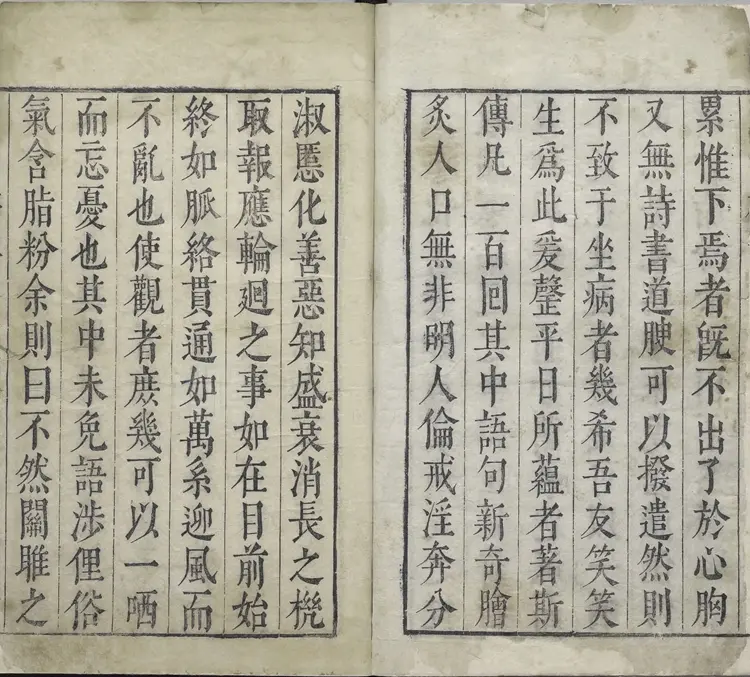 累惟下焉者既不出了於心胸
又無詩書道腴可以撥遣然則
不致于坐病者幾希吾友笑笑
生爲此爰罄平日所蘊者著斯
傳凡一百回其中語句新奇膾
炙人口無非明人倫戒淫奔分
淑慝化善惡知盛衰消長之機
取報應輪廻之事如在目前始
終如脈絡貫通如萬系迎風而
不亂也使觀者庶幾可以一哂
而忘憂也其中未免語涉俚俗
氣含脂粉余則曰不然關雎之